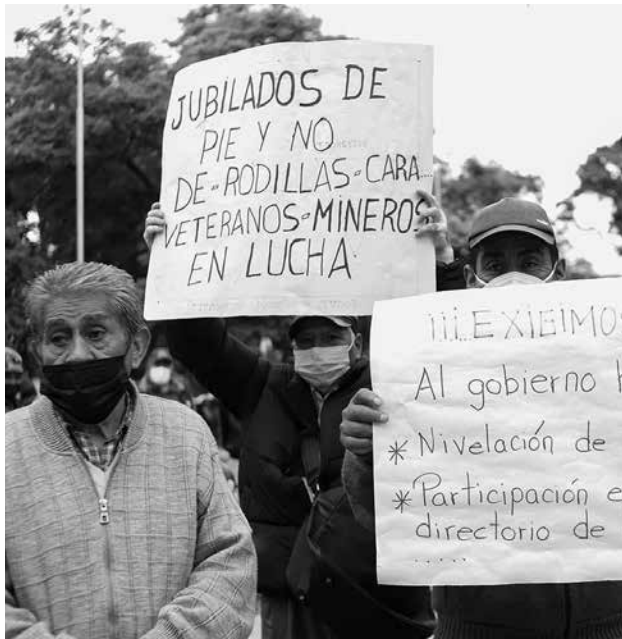 JUBILADOS DE
PIE Y NO
DE-RODILLAS-CARA...
VETERANOS-MINEROS
EN LUCHA
¡¡¡EXIGIMOS
Al gobierno
* Nivelación de
* Participación e
directorio de
.....